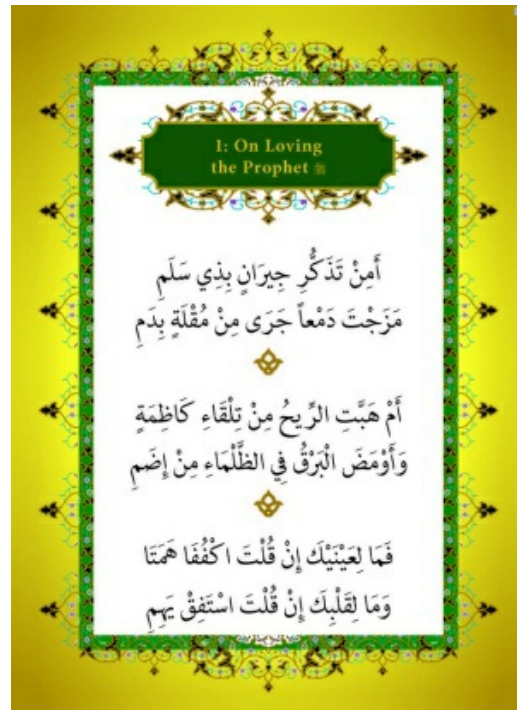 1: On Loving
the Prophet ﷺ
أَمِنْ تَذَكُّرِ جِيرَانٍ بِذِي سَلَمِ
مَزَجْتَ دَمْعاً جَرَى مِنْ مُقْلَةٍ بِدَمِ
أَمْ هَبَّتِ الرِّيحُ مِنْ تِلْقَاءِ كَاظِمَةٍ
وَأَوْمَضَ الْبَرْقُ فِي الظَّلْمَاءِ مِنْ إِضَمِ
فَمَا لِعَيْنَيْكَ إِنْ قُلْتَ اكْفُفَا هَمَتَا
وَمَا لِقَلْبِكَ إِنْ قُلْتَ اسْتَفِقْ يَهِمِ